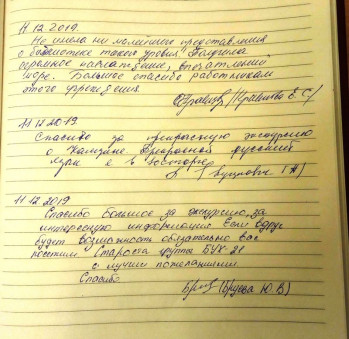 11.12.2019.
Не имела ни малейшего представления
о библиотеке такого уровня. Получила
огромное наслаждение, впечатлений
море. Большое спасибо работникам
этого учреждения.
/Кравцова Е С/
11.12.2019.
Спасибо за прекрасную экскурсию
о Прекрасной русский
язык я в восторге
11.12.2019
Спасибо большое за экскурсию, за
интересную информацию. Если вдруг
будет возможность обязательно вас
посетим. Староста группы БУК-21
с лучшими пожеланиями.
Спасибо
(Бруева Ю.В)